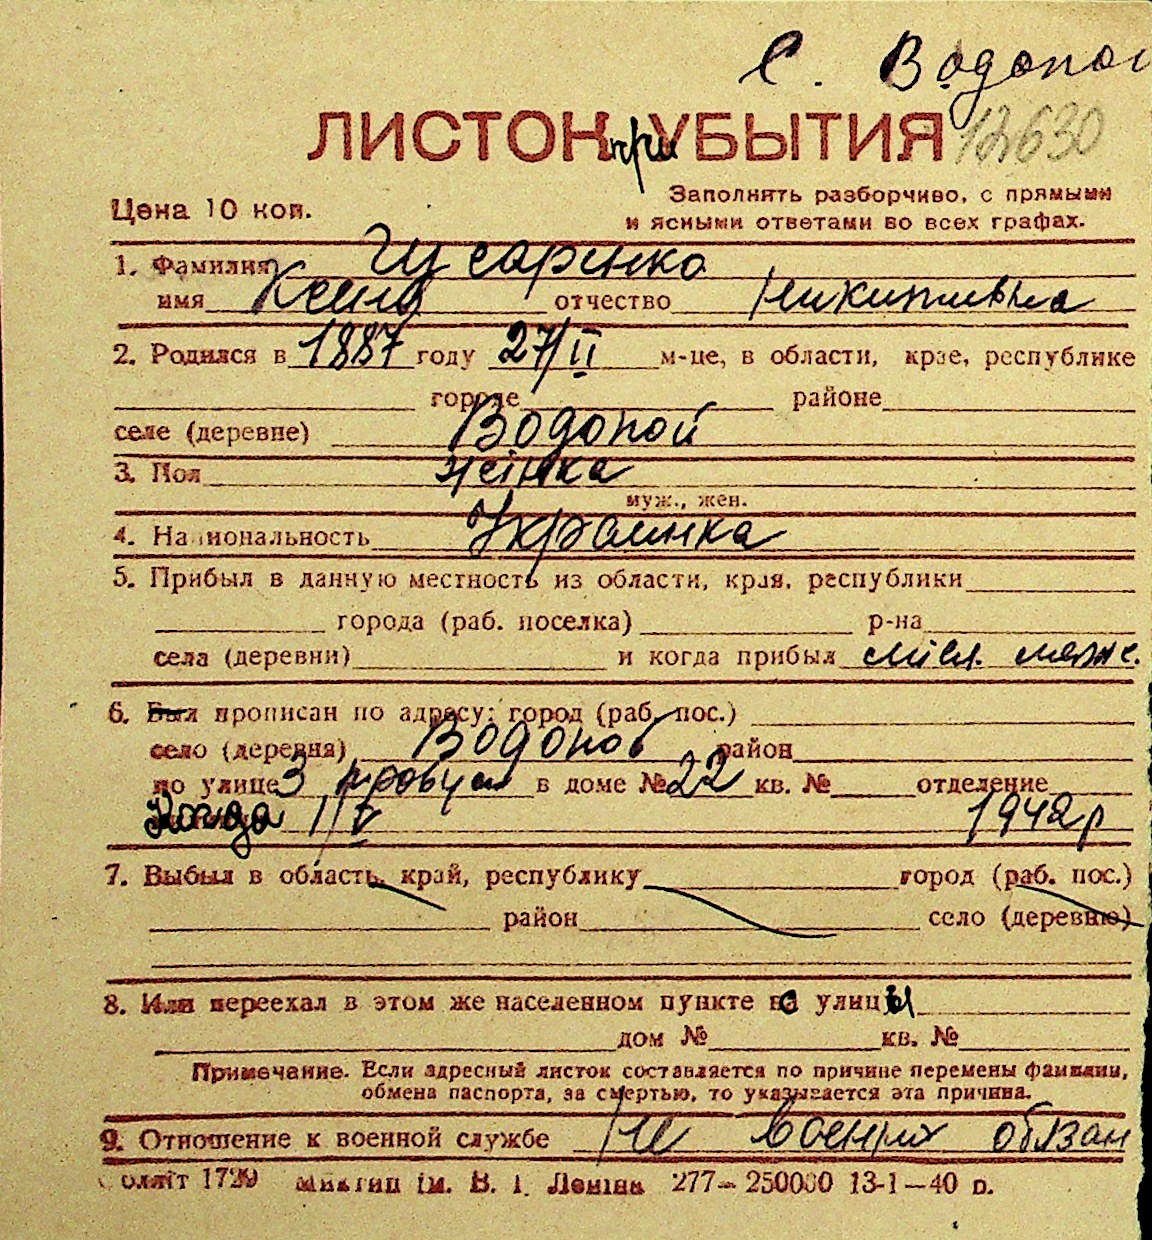 С. Водопой
ЛИСТОК при УБЫТИЯ 12630
Цена 10 коп.
Заполнять разборчиво, с прямыми
и ясными ответами во всех графах.
1. Фамилия Гусаренко
имя отчество Никитивна
2. Родился в 1887 году 27/II м-це, в области, крае, республике
городе районе
селе (деревне) Водопой
3. Пол жінка
муж., жен.
4. Национальность Украинка
5. Прибыл в данную местность из области, края, республики
города (раб. поселка) р-на
села (деревни) и когда прибыл
6. Был прописан по адресу: город (раб. пос.)
село (деревня) Водопой район
по улице 3 в доме № 22 кв. № отделение
Когда 1/V 1942 р
7. Выбыл в область, край, республику город (раб. пос.)
район село (деревню)
8. Или переехал в этом же населенном пункте с улицы
дом № кв. №
Примечание. Если адресный листок составляется по причине перемены фамилии,
обмена паспорта, за смертью, то указывается эта причина.
9. Отношение к военной службе Не обязан
1729 ім. В. І. Леніна 277—250000 13-1—40 р.